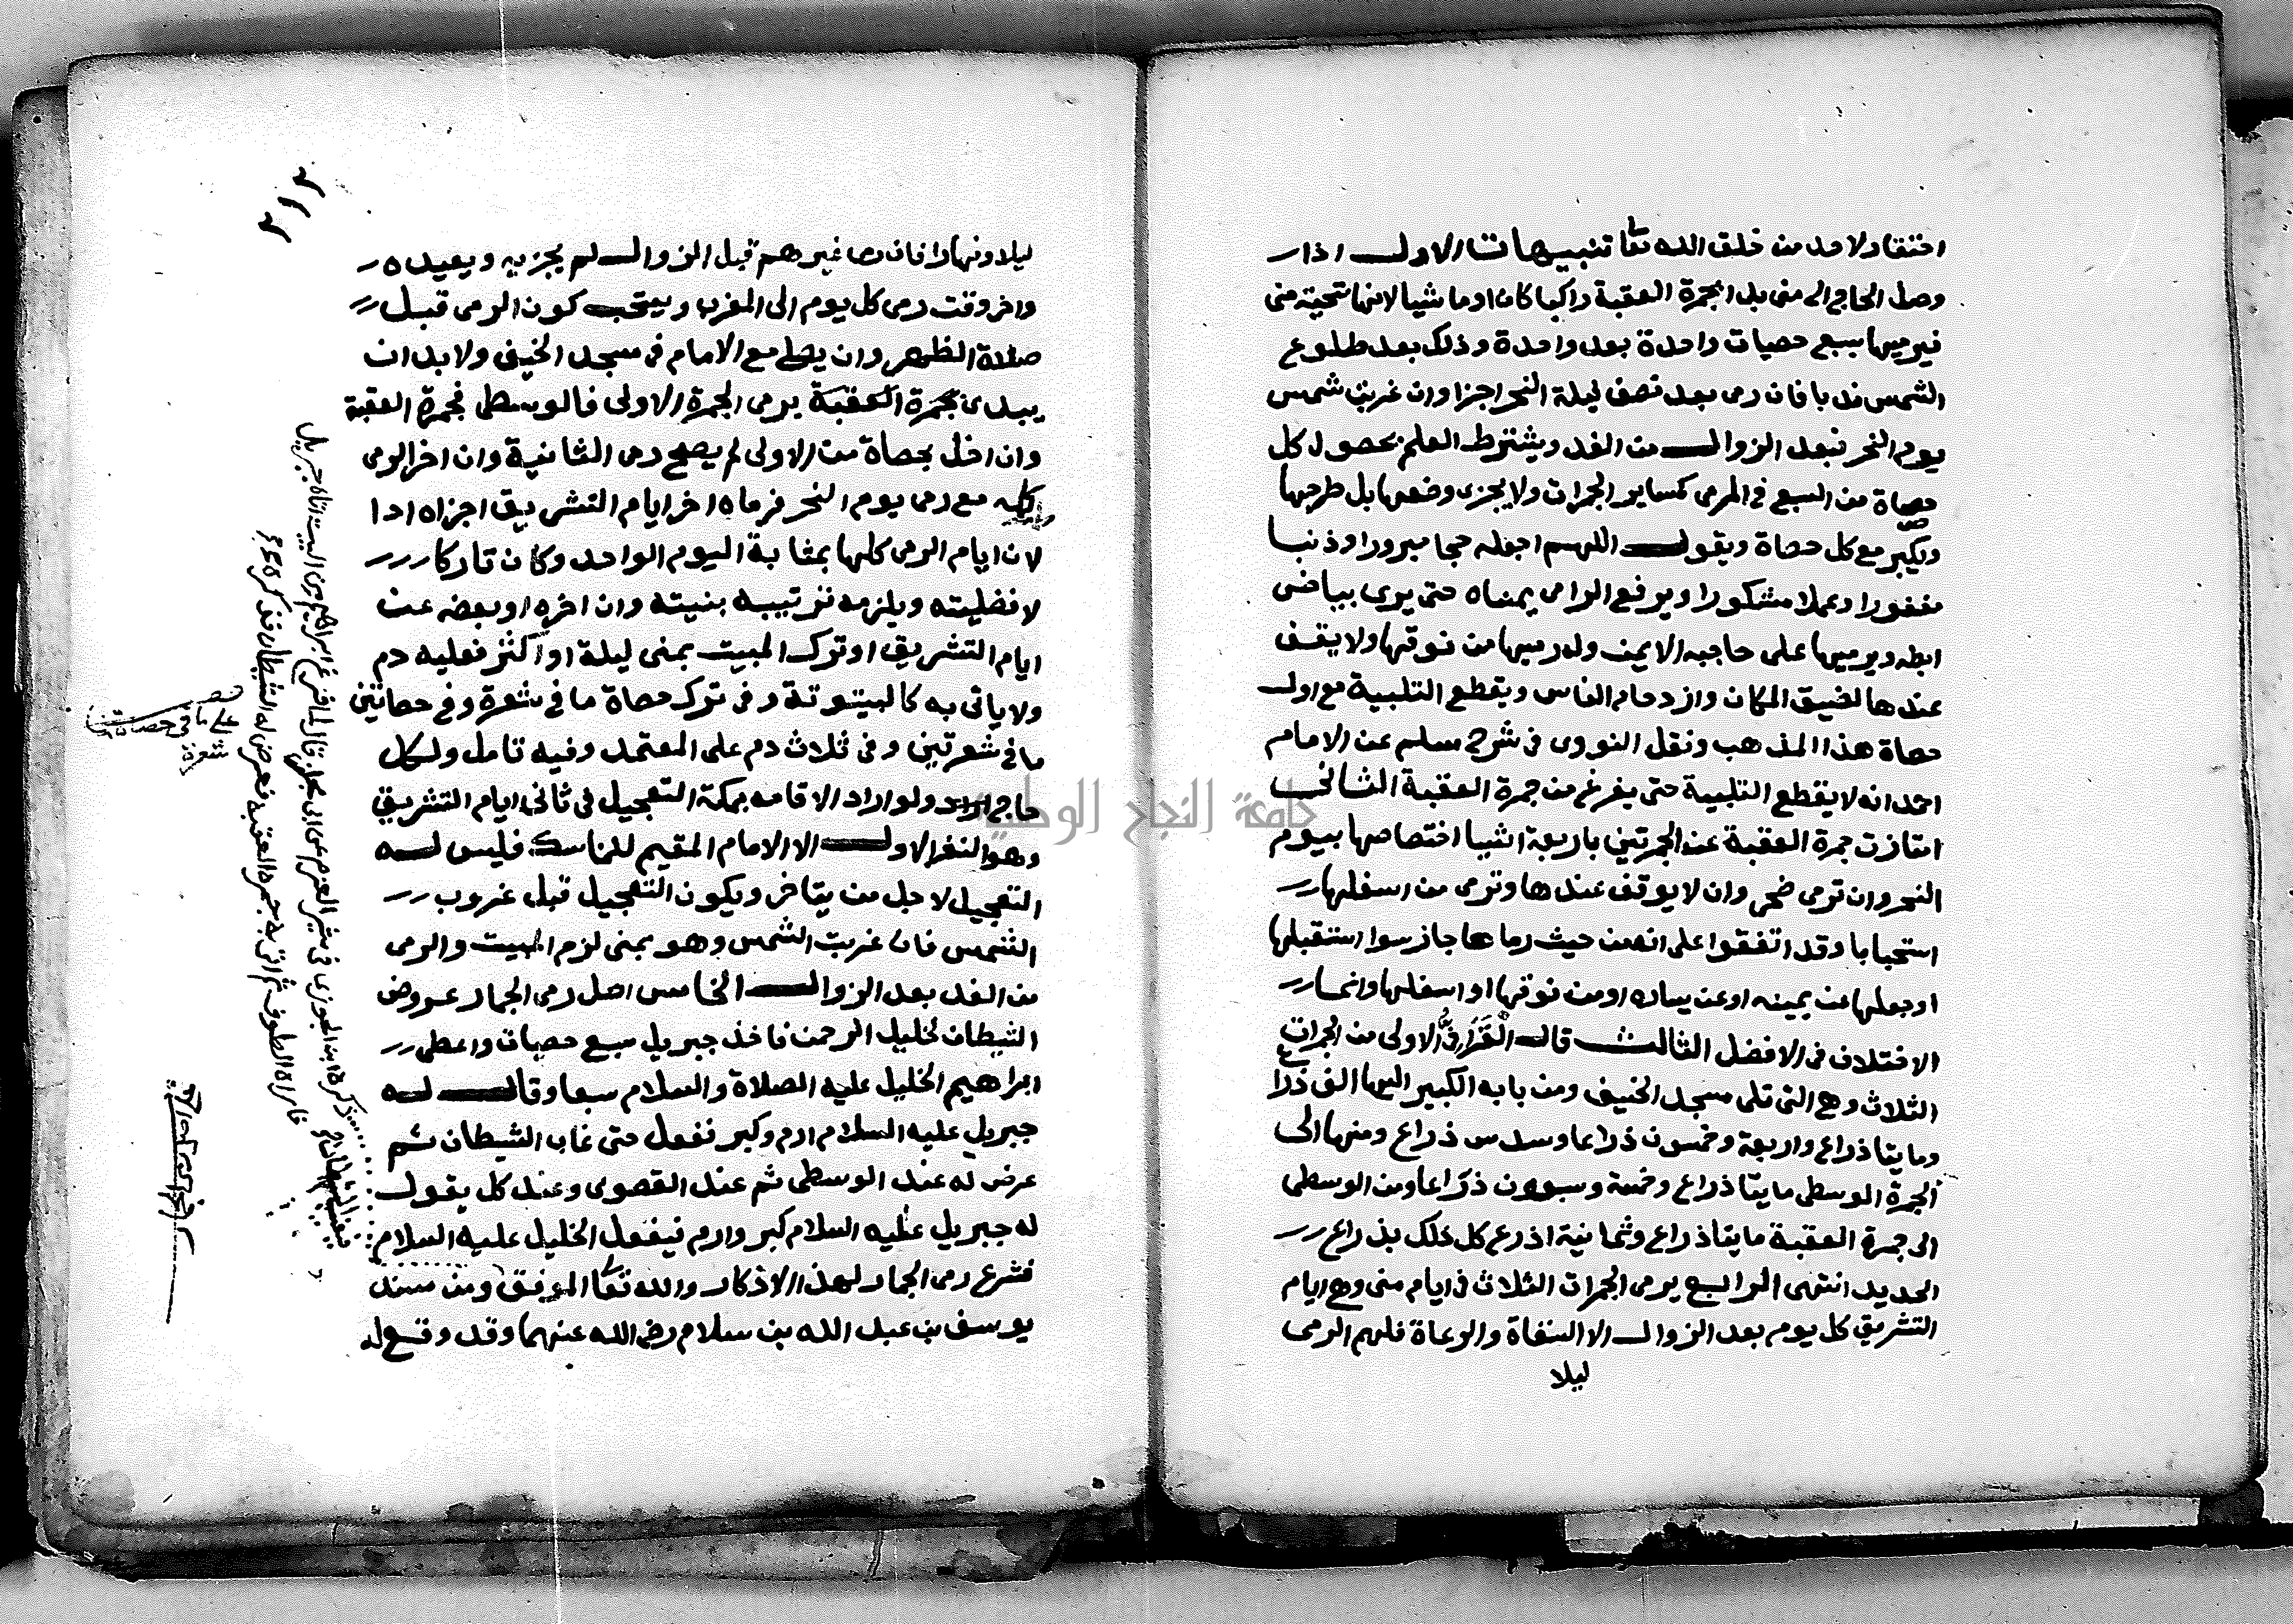 احتقاد لاحد من خلق الله تعا تنبيهات الاول اذا
وصل الحاج الى منى بدا بجمرة العقبة راكبا كان او ماشيا لانها تحية منى
فيرميها بسبع حصيات واحدة بعد واحدة وذلك بعد طلوع
الشمس ندبا فان رمى بعد نصف ليلة النحر اجزا وان غربت شمس
يوم النحر فبعد الزوال من الغد ويشترط العلم بحصول كل
حصاة من السبع في المرمى كساير الجمرات ولا يجزى وضعها بل طرحها
ويكبر مع كل حصاة ويقول اللهم اجعله حجا مبرورا وذنبا
مغفورا وعملا مشكورا ويرفع الرامي يمناه حتى يرى بياض
ابطه ويرميها على حاجبه الايمن وله رميها من فوقها ولا يقف
عندها لضيق المكان وازدحام الناس ويقطع التلبية مع اول
حصاة هذا المذهب ونقل النووى في شرح مسلم عن الامام
احمد انه لا يقطع التلبية حتى يفرغ من جمرة العقبة الثانى
امتازت جمرة العقبة عند الجمرتين باربعة اشيا اختصاصها بيوم
النحر وان ترمى ضحى وان لا يوقف عندها وترمى من اسفلها
استحبابا وقد اتفقوا على انه من حيث رماها جاز سوا استقبلها
او جعلها عن يمينه او عن يساره او من فوقها او اسفلها وانما
الاختلاف في الافضل الثالث قال الاولى من الجمرات
الثلاث وهي التي تلى مسجد الخيف ومن بابه الكبير اليها الف ذرا
ع
ومايتا ذراع واربعة وخمسون ذراعا وسدس ذراع ومنها الى
الجمرة الوسطى مايتا ذراع وخمسة وسبعون ذراعا ومن الوسطى
الى جمرة العقبة مايتا ذراع وثمانية اذرع كل ذلك بذراع
الحديد انتهى الرابع يرمى الجمرات الثلاث في ايام منى وهي ايام
التشريق كل يوم بعد الزوال الا السقاة والرعاة فلهم الرمى
ليلا
٢١٢
ليلا ونهارا فان رما غيرهم قبل الزوال لم يجزيه ويعيده
واخر وقت رمى كل يوم الى المغرب ويستحب كون الرمى قبل
صلاة الظهر وان يصلي مع الامام في مسجد الخيف ولا بد ان
يبدى بجمرة العقبة يرمى الجمرة الاولى فالوسطى فجمرة العقبة
وان اخل بحصاة من الاولى لم يصح رمى الثانية وان اخر الرمى
كله مع رمى يوم النحر فرماه اخر ايام التشريق اجزاه ادا
لان ايام الرمى كلها بمثابة اليوم الواحد وكان تاركا
لافضليته ويلزمه ترتيبه بنيته وان اخره او بعضه عن
ايام التشريق او ترك المبيت بمنى ليلة او اكثر فعليه دم
ولا ياتى به كالبيتوتة وفى ترك حصاة ما في شعرة وفي حصاتين
ما في شعرتين وفى ثلاث دم على المعتمد وفيه تامل ولكل
حاج ولو اراد الاقامه بمكة التعجيل في ثانى ايام التشريق
وهو النفر الاول الا الامام المقيم للمناسك فليس له
التعجيل لاجل من يتاخر ويكون التعجيل قبل غروب
الشمس فان غربت الشمس وهو بمنى لزم المبيت والرمى
من الغد بعد الزوال الخامس اصل رمى الجمار عروض
الشيطان لخليل الرحمن فاخذ جبريل سبع حصيات واعطى
ابراهيم الخليل عليه الصلاة والسلام سبعا وقال له
جبريل عليه السلام ارم وكبر ففعل حتى غاب الشيطان ثم
عرض له عند الوسطى ثم عند القصوى وعند كل يقول
له جبريل عليه السلام كبر وارم فيفعل الخليل عليه السلام
فشرع رمى الجمار لهذه الاذكار والله تعا الموفق ومن مسند
يوسف بن عبد الله بن سلام رضى الله عنهما وقد وقع له
على ما في حصاة
شعرة
ذكره ابن الجوزى فى مثير العزم عن ابى مجلز قال لما فرغ ابراهيم من البيت اتاه جبريل
فاراه الطواف ثم اتى به جمرة العقبة فعرض له الشيطان
جامعة النجاح الوطنية